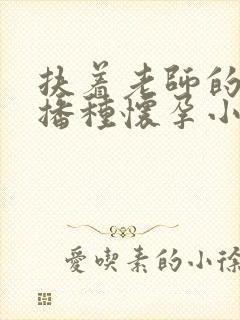 扶着老師的
播種懷孕小
愛喫素的小徐